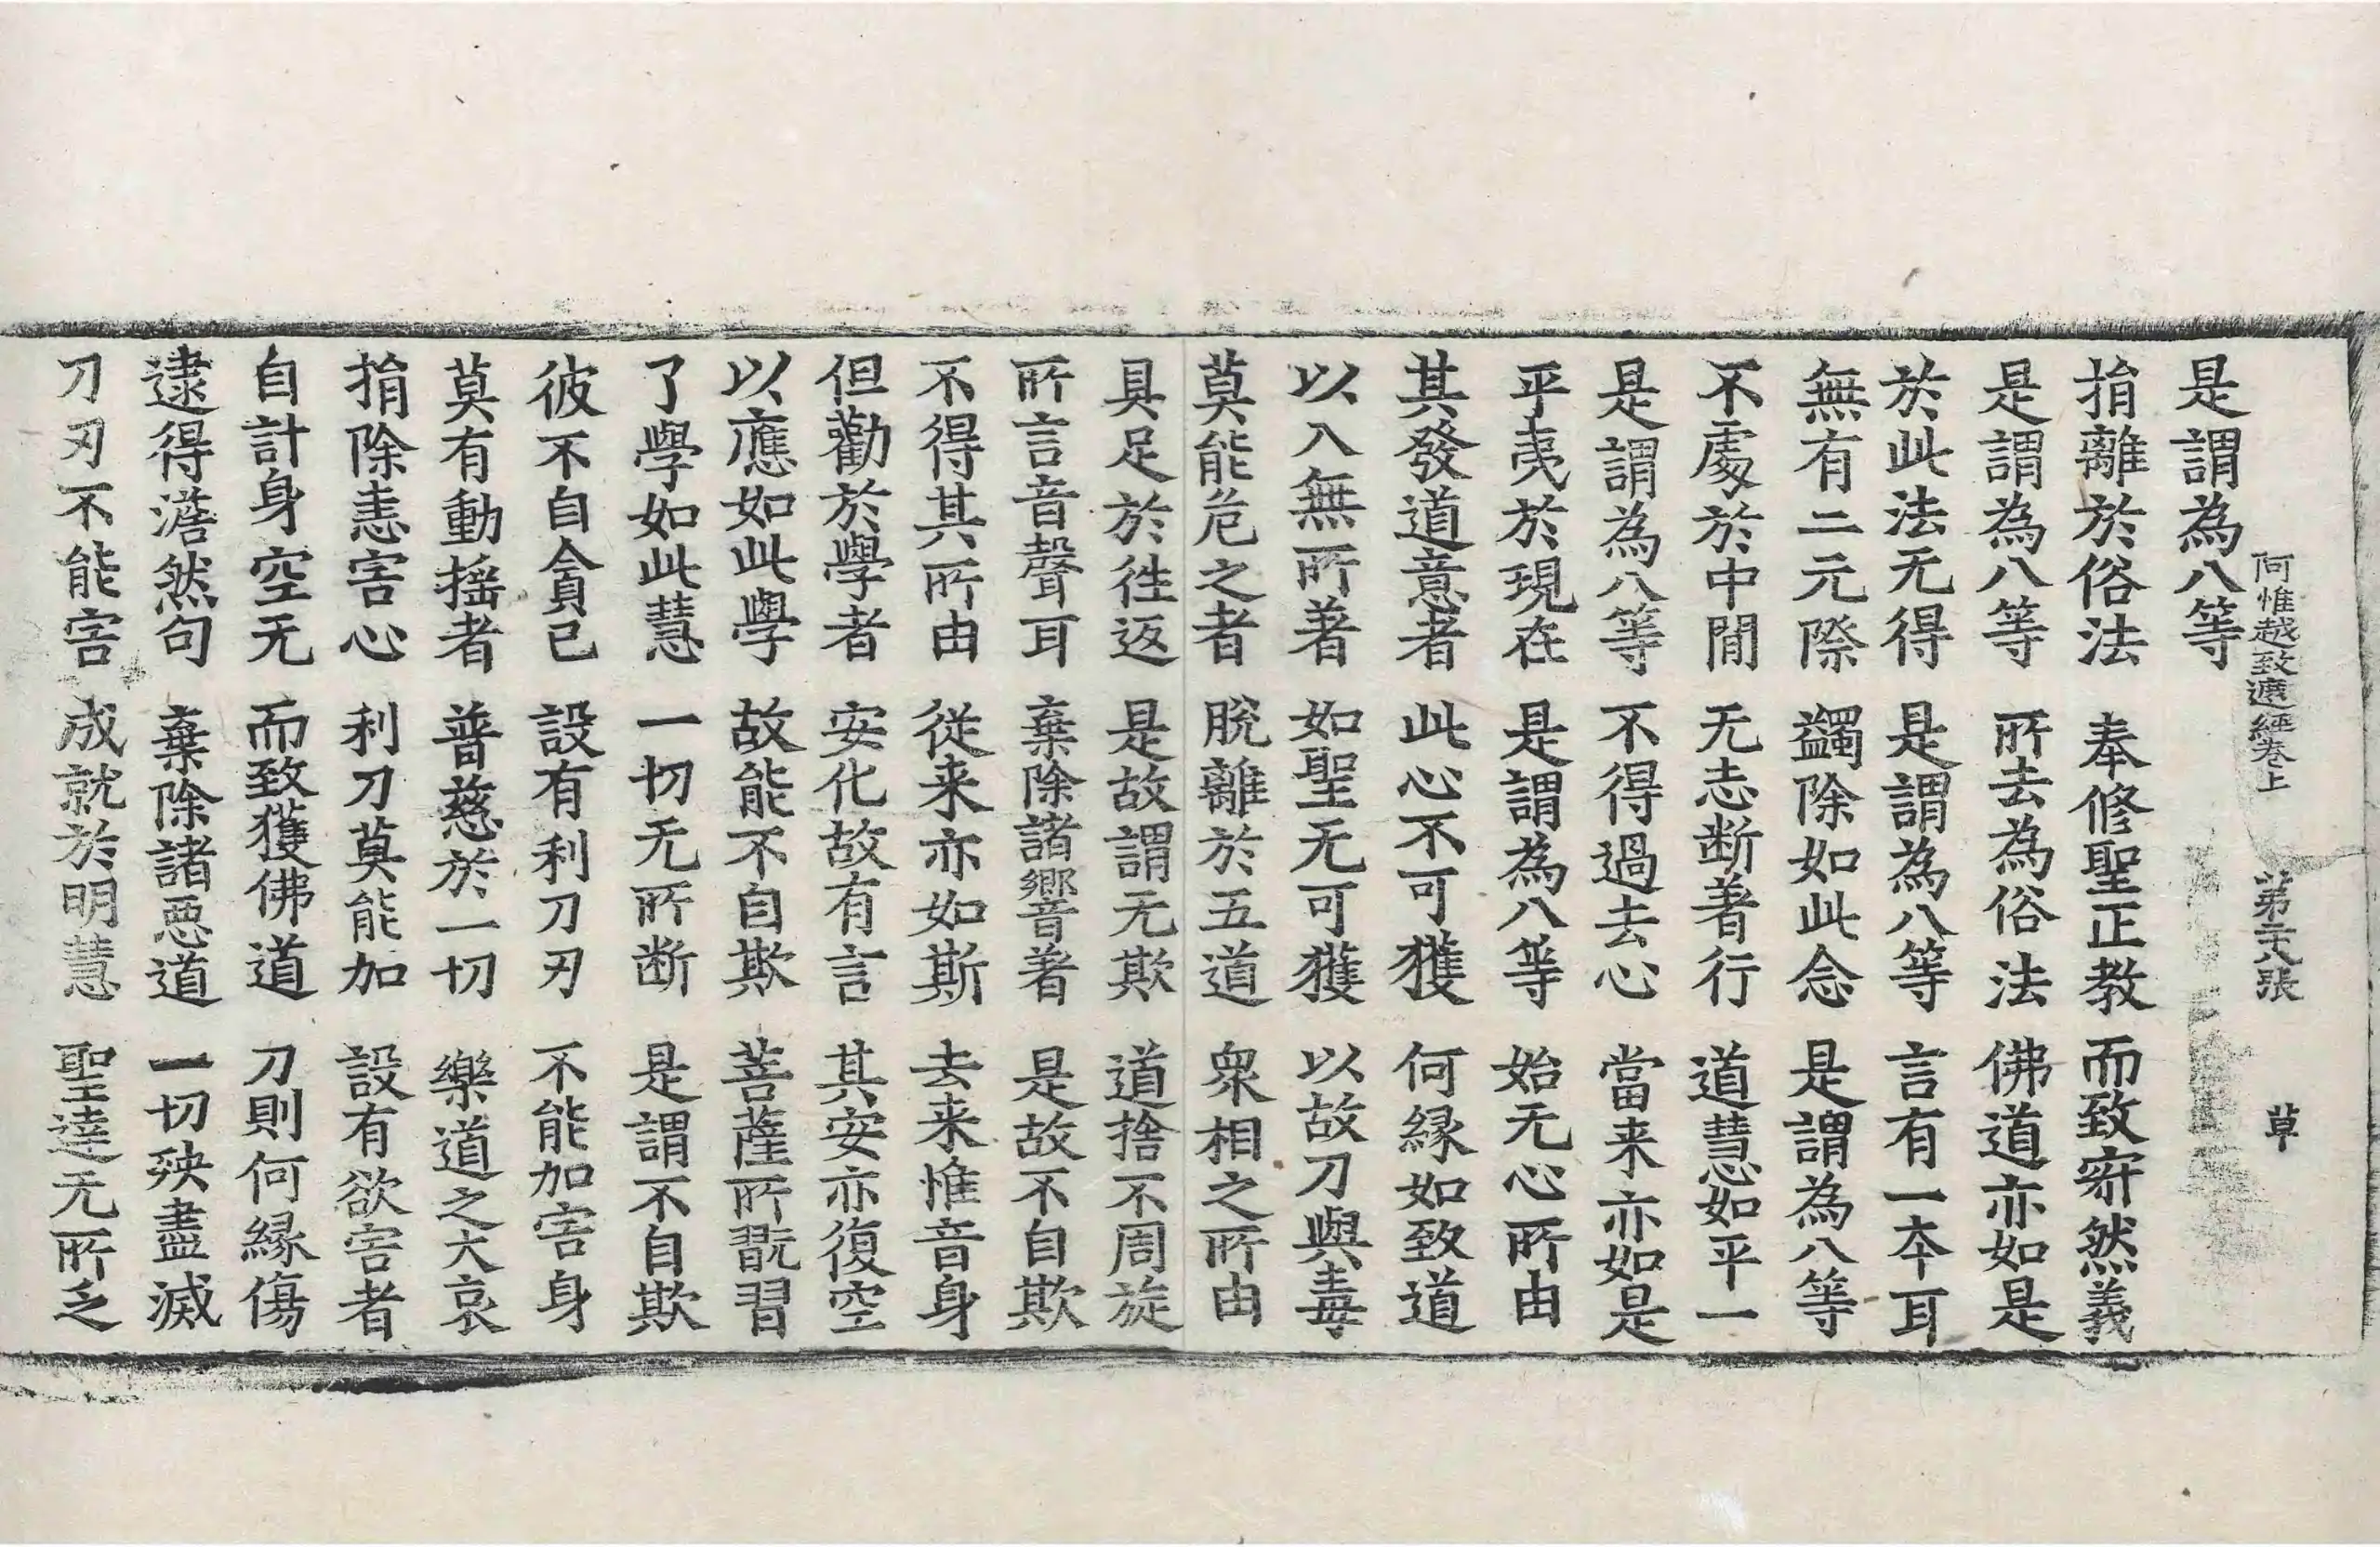 阿惟越致遮經卷上 第二十八張 草
是謂為八等
捐離於俗法 奉修聖正教 而致寂然義
是謂為八等 所去為俗法 佛道亦如是
於此法无得 是謂為八等 言有一夲耳
無有二元際 蠲除如此念 是謂為八等
不處於中閒 无志断著行 道慧如平一
是謂為八等 不得過去心 當来亦如是
平夷於現在 是謂為八等 始无心所由
其發道意者 此心不可獲 何緣如致道
以入無所著 如聖无可獲 以故刀與毒
莫能危之者 脫離於五道 衆相之所由
具足於徃返 是故謂无欺 道捨不周旋
所言音聲耳 棄除諸響著 是故不自欺
不得其所由 從来亦如斯 去来惟音身
但勸於學者 安化故有言 其安亦復空
以應如此學 故能不自欺 菩薩所翫習
了學如此慧 一切无所断 是謂不自欺
彼不自貪己 設有利刀刃 不能加害身
莫有動揺者 普慈於一切 樂道之大哀
捐除恚害心 利刀莫能加 設有欲害者
自計身空无 而致獲佛道 刀則何緣傷
逮得澹然句 棄除諸惡道 一切殃盡滅
刀刃不能害 成就於明慧 聖達无所乏